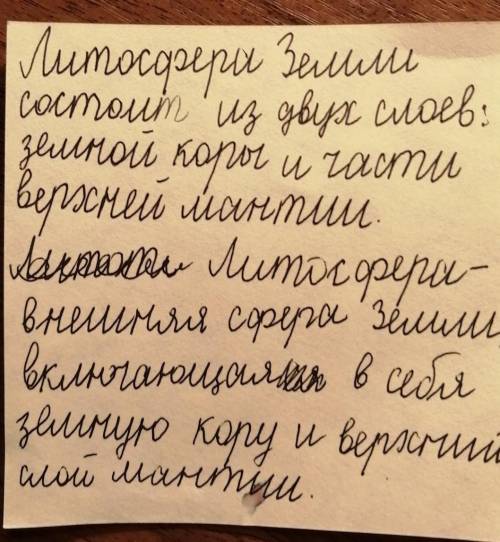 Литосфера Земли
состоит из двух слоев:
земной коры и части
верхней мантии.
Литосфера-
внешняя сфера Земли
включающая в себя
земную кору и верхний
слой мантии.